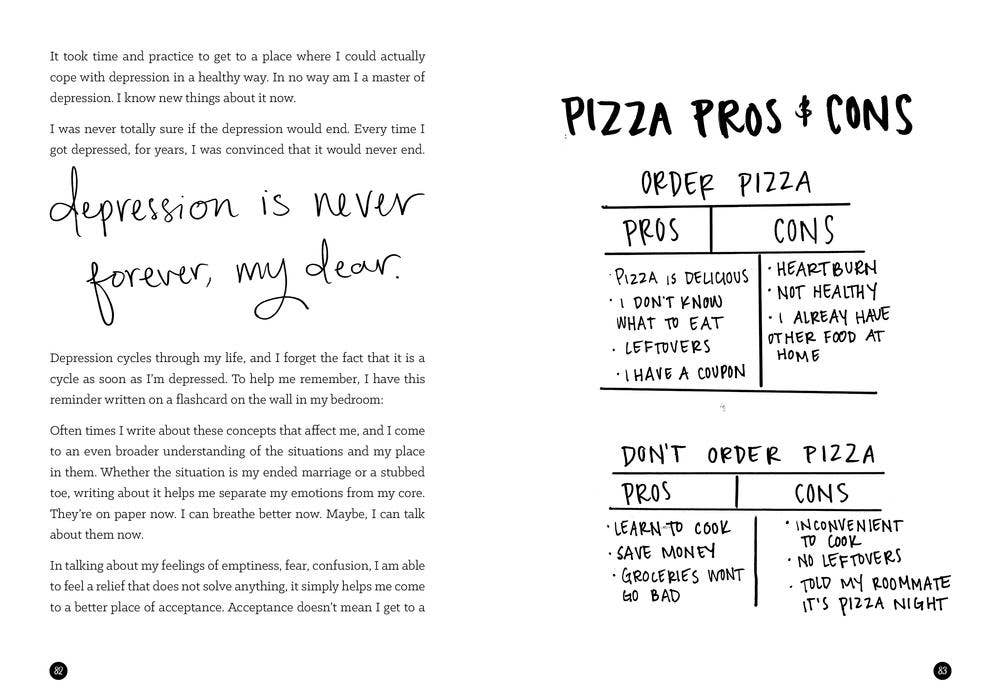 It took time and practice to get to a place where I could actually
cope with depression in a healthy way. In no way am I a master of
depression. I know new things about it now.
I was never totally sure if the depression would end. Every time I
got depressed, for years, I was convinced that it would never end.
depression is never
forever, my dear.
Depression cycles through my life, and I forget the fact that it is a
cycle as soon as I'm depressed. To help me remember, I have this
reminder written on a flashcard on the wall in my bedroom:
Often times I write about these concepts that affect me, and I come
to an even broader understanding of the situations and my place
in them. Whether the situation is my ended marriage or a stubbed
toe, writing about it helps me separate my emotions from my core.
They're on paper now. I can breathe better now. Maybe, I can talk
about them now.
In talking about my feelings of emptiness, fear, confusion, I am able
to feel a relief that does not solve anything, it simply helps me come
to a better place of acceptance. Acceptance doesn't mean I get to a
82
PIZZA PROS & CONS
ORDER PIZZA
PROS CONS
· PIZZA IS DELICIOUS
· I DON'T KNOW
WHAT TO EAT
· LEFTOVERS
· I HAVE A COUPON
· HEARTBURN
· NOT HEALTHY
· I ALREAY HAVE
OTHER FOOD AT
HOME
DON'T ORDER PIZZA
PROS CONS
· LEARN TO COOK
· SAVE MONEY
· GROCERIES WONT
GO BAD
· INCONVENIENT
TO COOK
· NO LEFTOVERS
· TOLD MY ROOMMATE
IT'S PIZZA NIGHT
83